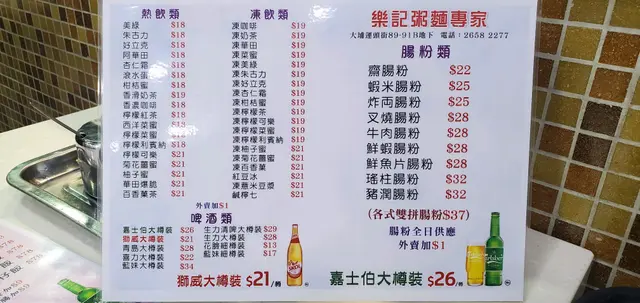 熱飲類
美綠 $18
朱古力 $18
好立克 $18
阿華田 $18
杏仁霜 $18
滾水蛋 $18
柑桔蜜 $18
香滑奶茶 $19
香濃咖啡 $18
檸檬紅茶 $18
西洋菜蜜 $13
檸檬菜蜜
檸檬利賓納 $18
檸檬可樂 $21
菊花薑蜜 $21
柚子蜜 $21
華田爆脆 $21
百香菓茶 $21
凍飲類
凍咖啡 $19
凍奶茶 $19
凍華田 $19
凍美綠 $19
凍朱古力 $19
凍好立克 $19
凍杏仁霜 $19
凍柑桔蜜 $19
凍檸檬茶 $19
凍檸檬可樂 $19
凍檸檬菜蜜 $19
凍檸檬利賓納 $19
凍柚子蜜 $21
凍菊花薑蜜 $21
凍百香菓 $21
紅豆冰 $21
凍薏米豆漿 $21
鹹檸七 $21
外賣加$1
啤酒類
嘉士伯大樽裝 $26
獅威大樽裝 $21
青島大樽裝 $28
喜力大樽裝 $28
藍妹大樽裝 $34
生力清啤大樽裝 $29
生力大樽裝 $28
花臉細樽裝 $13
藍妹細樽裝 $17
獅威大樽裝 $21/樽
樂記粥麵專家
大埔運頭街89-91B地下 電話：2658 2277
腸粉類
齋腸粉 $22
蝦米腸粉 $25
炸両腸粉 $25
叉燒腸粉 $28
牛肉腸粉 $28
鮮蝦腸粉 $28
鮮魚片腸粉 $28
瑤柱腸粉 $32
豬潤腸粉 $32
(各式雙拼腸粉$37)
腸粉全日供應
外賣加$1
嘉士伯大樽裝 $26/樽